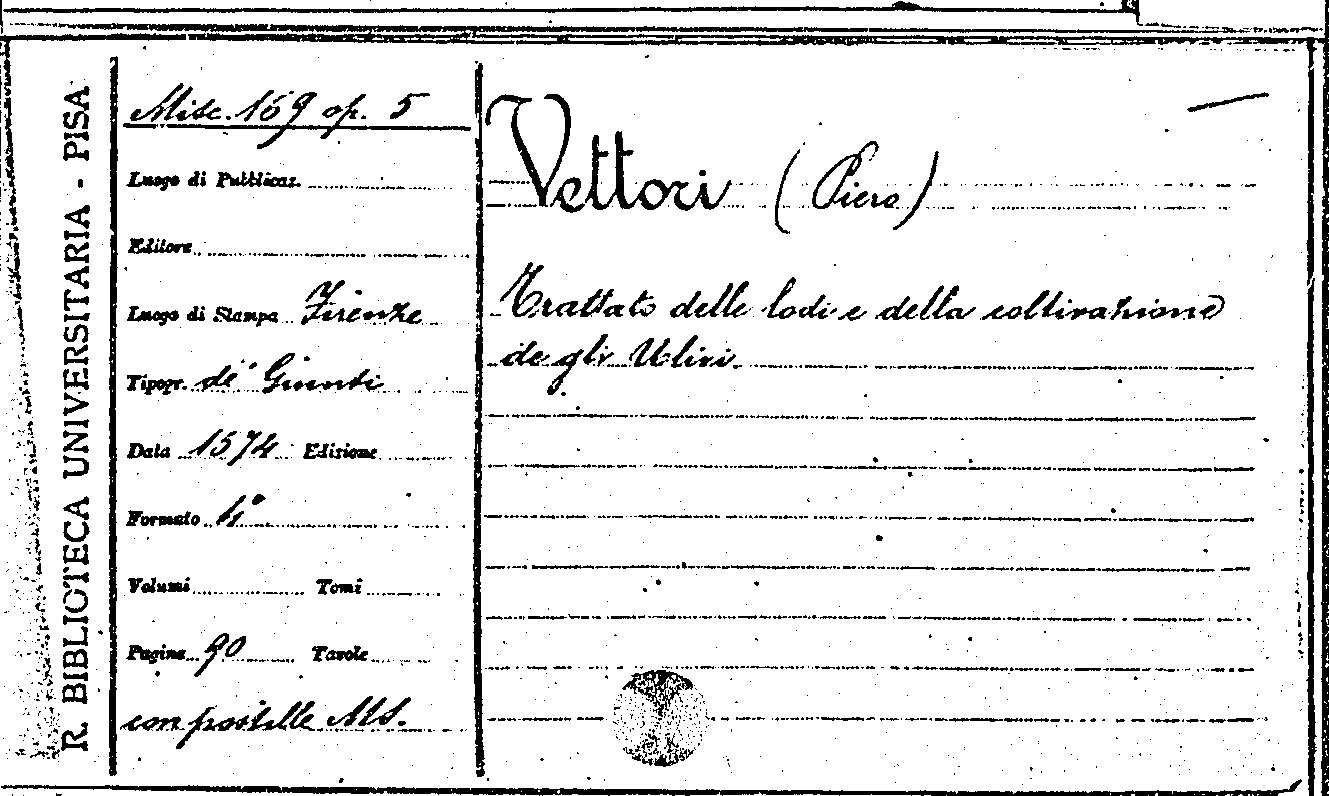 R. BIBLIOTECA UNIVERSITARIA - PISA
Misc. 169 op. 5
Luogo di Pubblicaz.
Editore
Luogo di Stampa Firenze
Tipogr. de' Giunti
Data 1574 Edizione
Formato 4°
Volumi Tomi
Pagine 90 Tavole
con postille MS.
Vettori (Piero)
Trattato delle lodi e della coltivazione
de gli Ulivi.